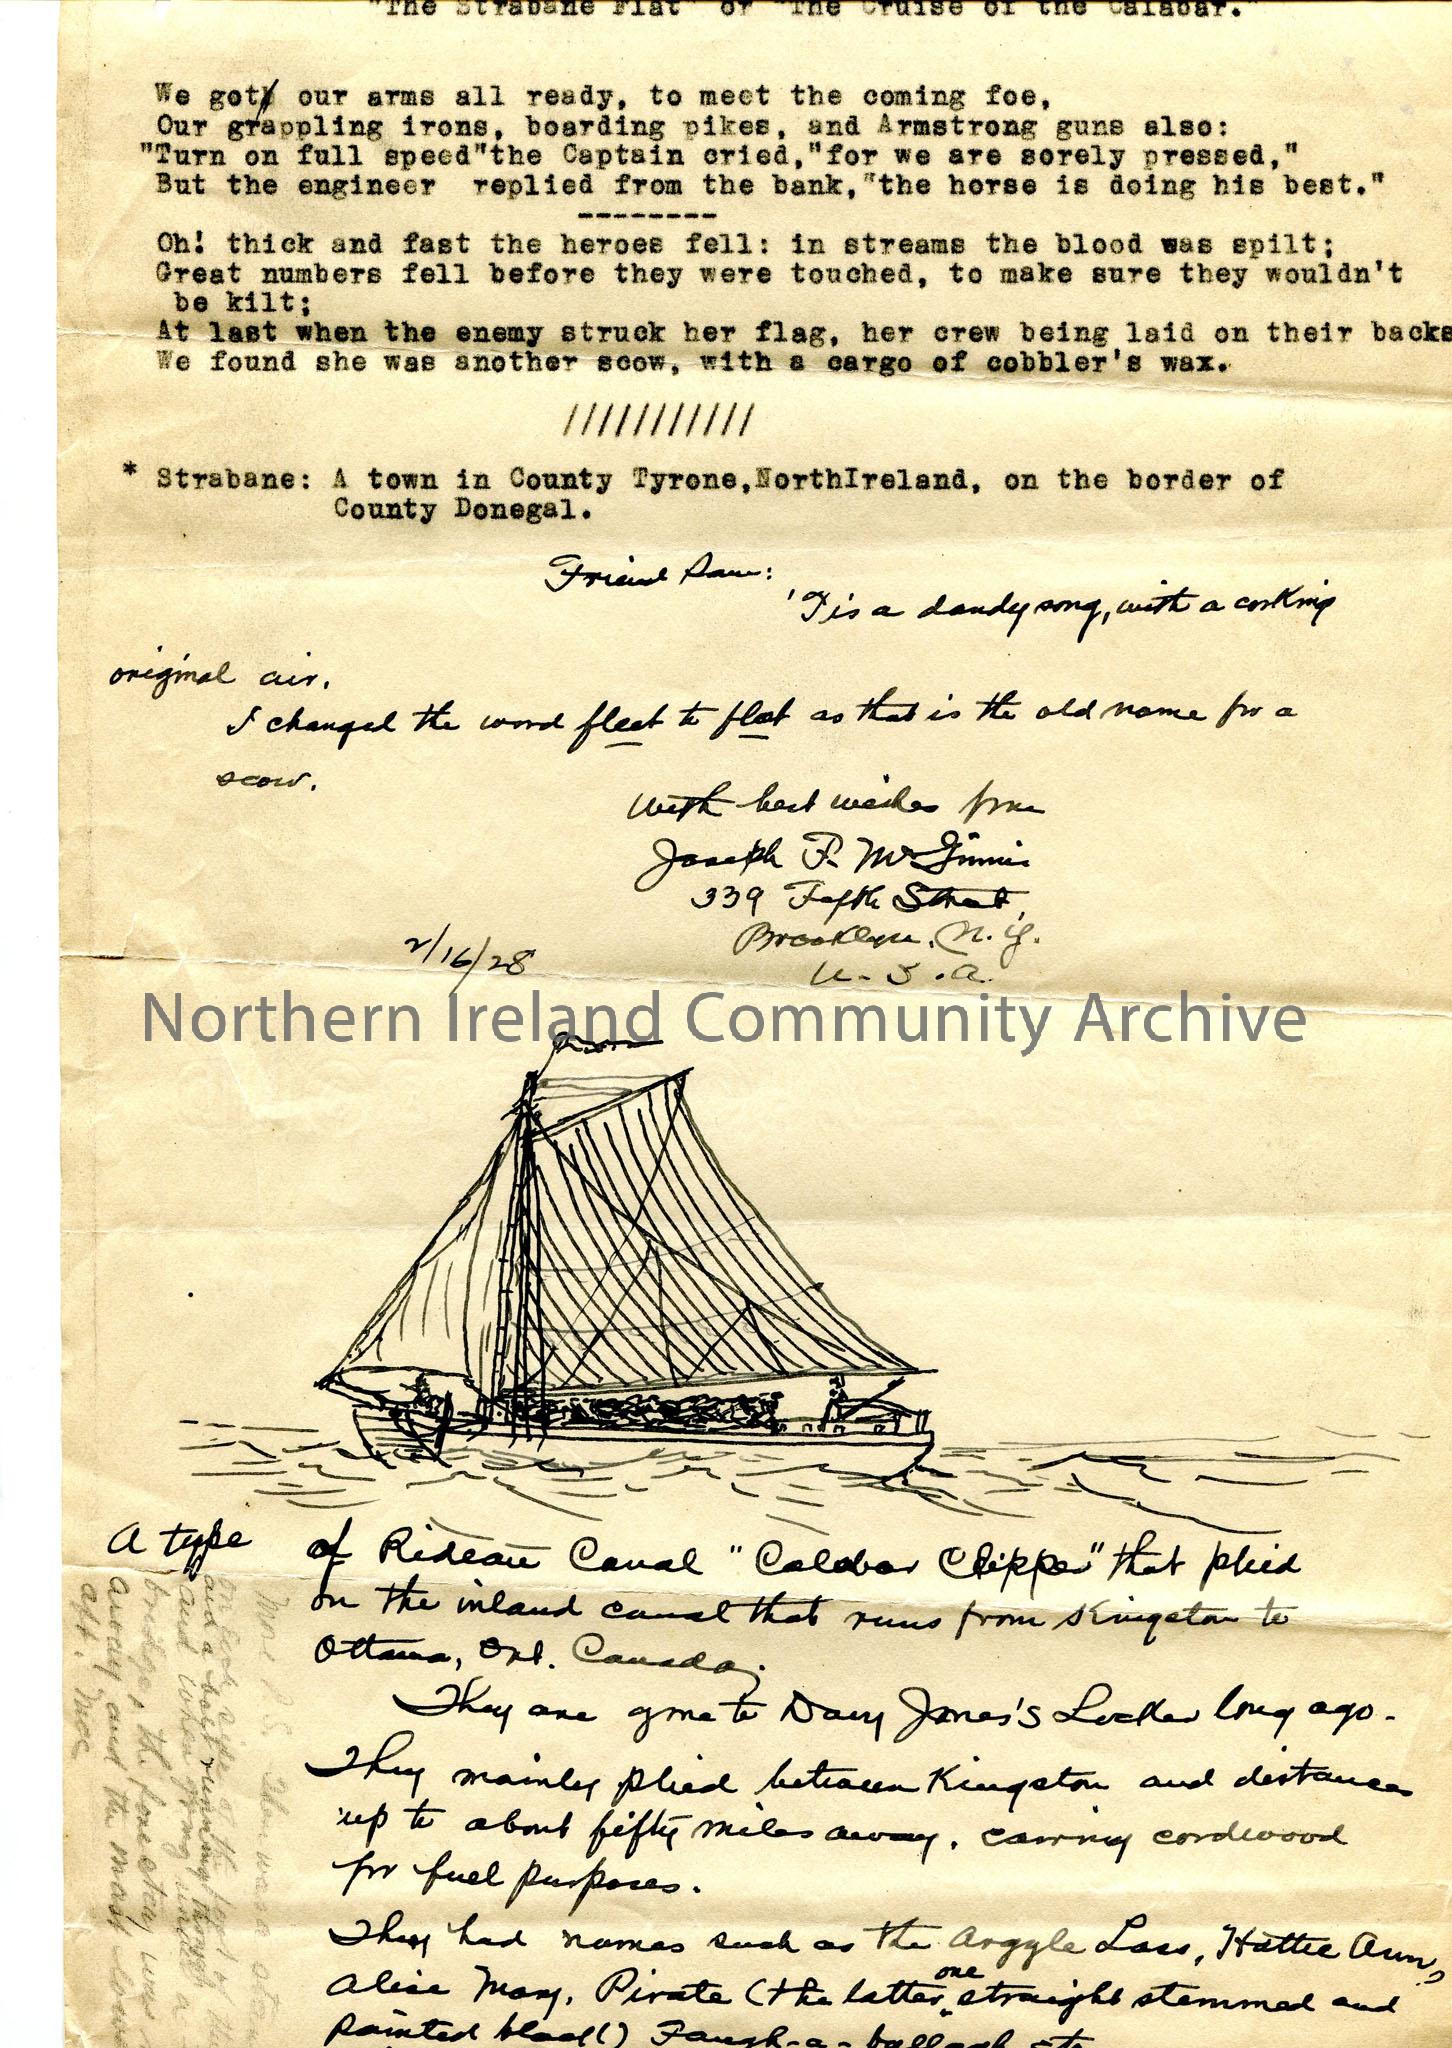 "The Strabane Flat" or "The Cruise of the Calabar."
We got our arms all ready, to meet the coming foe,
Our grappling irons, boarding pikes, and Armstrong guns also:
"Turn on full speed"the Captain cried,"for we are sorely pressed,"
But the engineer replied from the bank,"the horse is doing his best."
--------
Oh! thick and fast the heroes fell: in streams the blood was spilt;
Great numbers fell before they were touched, to make sure they wouldn't
be kilt;
At last when the enemy struck her flag, her crew being laid on their backs
We found she was another scow, with a cargo of cobbler's wax.
///////////
* Strabane: A town in County Tyrone,NorthIreland, on the border of
County Donegal.
Friend Sam:
'Tis a dandy song, with a corking
original air.
I changed the word fleet to flat as that is the old name for a
scow.
With best wishes from
Joseph F. McGinnis
339 Fifth Street,
Brooklyn, N.Y.
U.S.A.
2/16/28
Northern Ireland Community Archive
A type of Rideau Canal "Calabar Clipper" that plied
on the inland canal that runs from Kingston to
Ottawa, Ont. Canada.
They are gone to Davy Jones's Locker long ago.
They mainly plied between Kingston and distances
up to about fifty miles away, carrying cordwood
for fuel purposes.
They had names such as the Argyle Lass, Hattie Ann,
Alice May, Pirate (the latter one straight stemmed and
painted black) Faugh-a-ballagh etc
More P.S. There was a stay
on each side of the
and a boat running
and when going under a
bridge, the forestay was
away and the mast lowered
aft. Mac